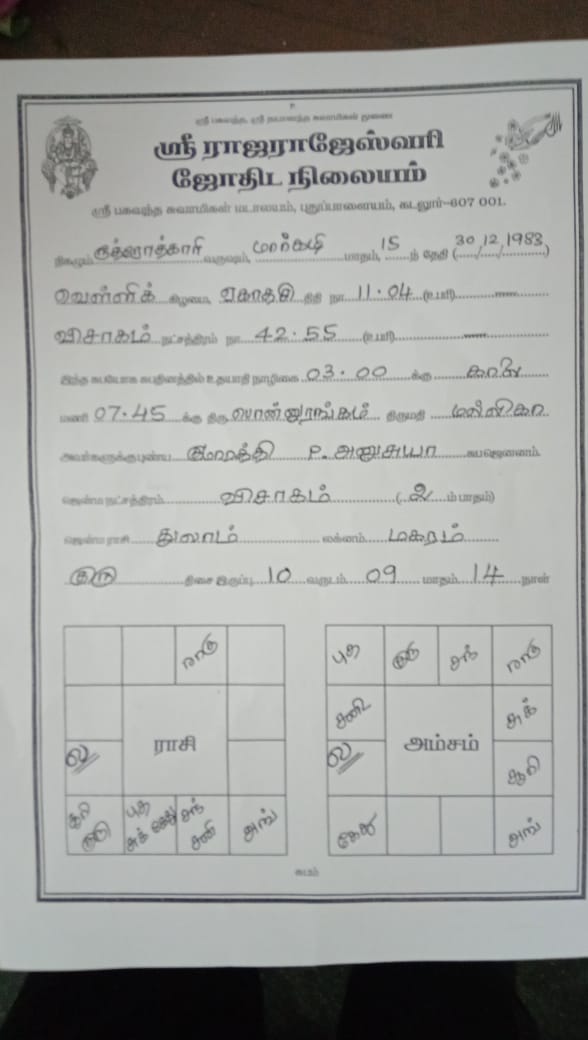 ஸ்ரீ ராஜராஜேஸ்வரி
ஜோதிட நிலையம்
ஸ்ரீ பகவந்த சுவாமிகள் மடாலயம், புதுப்பாளையம், கடலூர்-607 001.
நிகழும் ருத்ரோத்காரி வருஷம், மார்கழி மாதம், 15 ந் தேதி (30.12.1983)
வெள்ளிக் கிழமை, ஏகாதசி திதி நா 11.04 (உ.பரி)
விசாகம் நட்சத்திரம் நா 42.55 (உ.பரி)
இந்த சுபயோக சுபதினத்தில் உதயாதி நாழிகை 03.00 க்கு காலை
மணி 07.45 க்கு திரு பொன்னுரங்கம் திருமதி மல்லிகா
அவர்களுக்கு புண்ய குமாரத்தி P. அனுசுயா சுபஜெனனம்.
ஜென்ம நட்சத்திரம் விசாகம் (2 ம் பாதம்)
ஜென்ம ராசி துலாம் லக்னம் மகரம்
குரு திசை இருப்பு 10 வருடம் 09 மாதம் 14 நாள்
ராகு
ல
ராசி
சூரி குரு
புத சுக் கேது
சந் சனி
அங்
புத குரு சந் ராகு
சனி
சுக்
ல
அம்சம்
சூரி
கேது
அங்
சுபம்